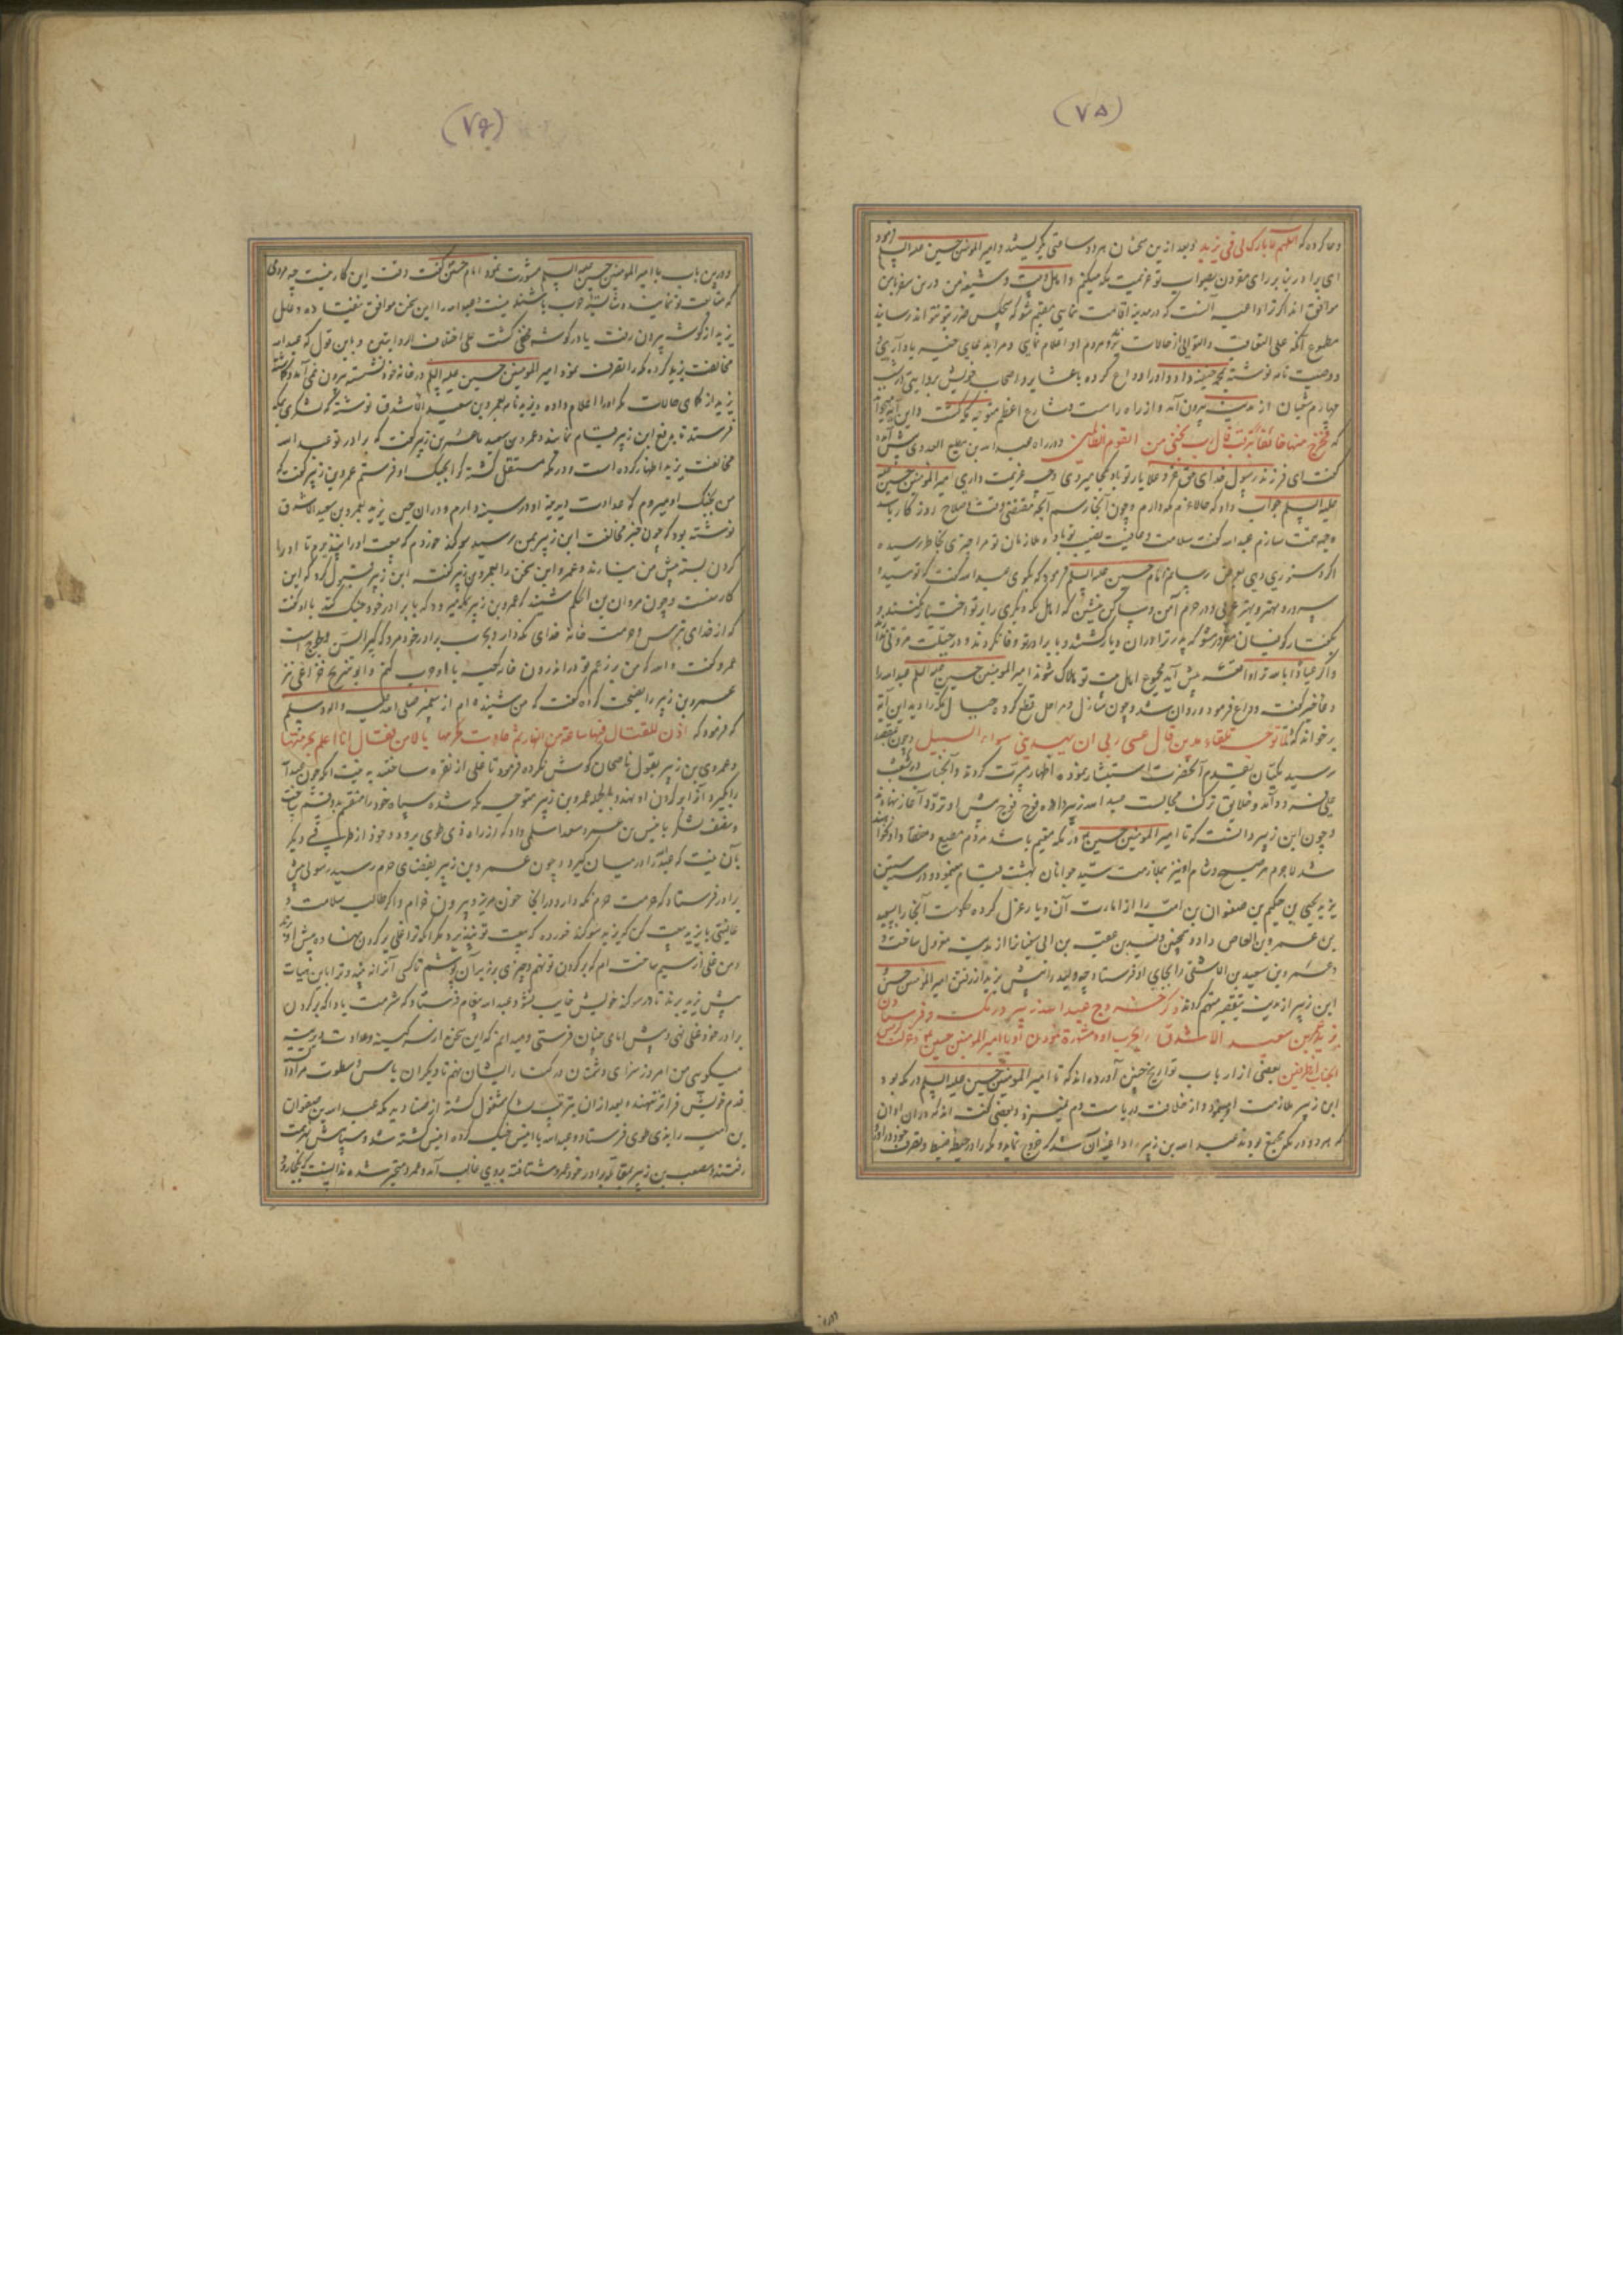 (۷۵)
دعا کرد که اللهم لا تبارک لی فی یزید و بعد ازین سخنان هر دو ساعتی بگریستند و امیر المومنین حسین علیه السلم فرمود
ای برادر بنا بر رای مقرون بصواب تو عزیمت مکه میکنم و اهل بیت و شیعه من درین سفر با من
موافق اند اگر ترا داعیه آنست که در مدینه اقامت نمایی مقیم شو که هیچکس ضرر بتو نتواند رسانید
علی التعاقب و التوالی از حالات
و وصیت نامه نوشته بمحمد حنیفه داد و او را وداع کرده با عشایر و اصحاب خویش بروایتی در شب
چهارم شعبان از مدینه بیرون آمد و از راه راست و شارع اعظم متوجه مکه گشت و این آیه میخواند
که فخرج منها خائفا یترقب قال رب نجنی من القوم الظالمین و در راه عبد الله بن مطیع العدوی پیش آمده
گفت ای فرزند رسول خدای حق عز و علا یار تو باد بکجا میروی و چه عزیمت داری امیر المومنین حسین
علیه السلم جواب داد که حالا عزم مکه دارم و چون آنجا رسم آنچه مقتضی وقت و صلاح روزگار باشد
وجهه همت سازم عبد الله گفت سلامت و عافیت نصیب تو باد و ملازمان تو مرا چیزی بخاطر رسیده
اگر دستوری دهی بعرض رسانم امام حسین علیه السلم فرمود که بگوی عبد الله گفت که تو سید و
سرور و مهتر و بهتر عربی و در حرم آمن و ساکن بنشین که اهل مکه دیگری را بر تو اختیار نکنند و
بگفتار کوفیان مغرور مشو که پدر ترا در آن دیار کشتند و با برادر تو وفا نکردند و در جبلت مروتی ندارند
و اگر عیاذا بالله ترا واقعه پیش آید مجموع اهل بیت تو هلاک شوند امیر المومنین حسین علیه السلم عبد الله را
دعا خیر گفت و وداع فرمود و روان شد و چون منازل و مراحل قطع کرده جبال مکه را دید این آیه
برخواند که و لما توجه تلقاء مدین قال عسی ربی ان یهدینی سواء السبیل و چون بمقصد
رسید مکیان بقدوم آنحضرت استبشار نموده اظهار مسرت کردند و آنجناب در شعب
علی فرود آمد و خلایق ترک مجالست عبد الله زبیر داده فوج فوج پیش او تردد آغاز نهادند
و چون ابن زبیر دانست که تا امیر المومنین حسین در مکه مقیم باشد مردم مطیع و منقاد او نخواهند
شد لاجرم هر صبح و شام او نیز بملازمت سید جوانان بهشت قیام مینمود و در سنه ستین
یزید یحیی بن حکیم بن صفوان بن امیه را از امارت آن دیار عزل کرده حکومت آنجا را بسعید
بن عمرو بن العاص داد و همچنین ولید بن عقبه بن ابی سفیان را از مدینه معزول ساخت و
و عمرو بن سعید بن الاشدق را بجای او فرستاد چه ولید را پیش یزید از رفتن امیر المومنین حسین و
ابن زبیر از مدینه بتقصیر متهم کردند ذکر خروج عبد الله زبیر در مکه و فرستادن
یزید عمرو بن سعید الاشدق را بحرب او و مشورة نمودن او با امیر المومنین حسین
بعضی از ارباب تواریخ چنین آورده اند که تا امیر المومنین حسین علیه السلم در مکه بود
ابن زبیر ملازمت او مینمود و از خلافت و ریاست دم نمیزد و بعضی گفته اند که در آن اوان
که هر دو در مکه مجتمع بودند عبد الله بن زبیر را داعیه آن شد که خروج نماید و مکه را در حیطه ضبط و تصرف خود درآورد
(۷۶)
و درین باب با امیر المومنین حسین علیه السلم مشورت نمود امام حسین گفت وقت این کار نیست چه مردمی
که متابعت تو نمایند و شایسته حرب باشند نیست و عبد الله را این سخن موافق نیفتاده و عامل
یزید از گوشه بیرون رفت یا در گوشه مخفی گشت علی اختلاف الروایتین و باین قول که عبد الله
مخالفت یزید کرده مکه را تصرف نمود امیر المومنین حسین علیه السلم در خانه خود نشسته بیرون نمی آمد
یزید از کمای حالات مکه او را اعلام داده و یزید نامه بعمرو بن سعید الاشدق نوشته که لشکری بمکه
فرستد تا بدفع ابن زبیر قیام نمایند و عمرو بن سعید با عمرو بن زبیر گفت که برادر تو عبد الله
مخالفت یزید اظهار کرده است و در مکه مستقل گشته کرا بجنگ او فرستم عمرو بن زبیر گفت که
من بجنگ او میروم که عداوت دیرینه او در سینه دارم و در آن حین یزید بعمرو بن سعید الاشدق
نوشته بود که چون خبر مخالفت ابن زبیر بمن رسید سوگند خوردم که بیعت او را نپذیرم تا او را
گردن بسته پیش من نیارند و عمرو این سخن را بعمرو بن زبیر گفت ابن زبیر قبول کرد که این
کار منست و چون مروان بن الحکم شنید که عمرو بن زبیر بمکه میرود که با برادر خود جنگ کند با او گفت
که از خدای بترس و حرمت خانه خدای نگه دار و بحرب برادر خود مرو که کبیر السن است
عمرو گفت و الله که من بر زعم تو در اندرون خانه کعبه با او حرب کنم و ابو شریح خزاعی نیز
عمرو بن زبیر را نصیحت کرده گفت که من شنیده ام از پیغمبر صلی الله علیه و اله و سلم
که فرمود که اذن للقتال فیها ساعة من النهار ثم عادت بحرمتها بالامس فقال انا اعلم بحرمتها
و عمرو بن زبیر بقول ناصحان گوش نکرده فرمود تا غلی از نقره ساختند به نیت آنکه چون عبد الله
را بگیرد آنرا بر گردن او نهند و بالجمله عمرو بن زبیر متوجه مکه شده سپاه خود را منقسم بدو قسم ساخت
و نصف لشکر با انیس بن عمرو سعد اسلمی داد که از راه ذی طوی برود و خود از طرفی دیگر
بآن نیت که عبد الله را در میان گیرد و چون عمرو بن زبیر بفضای حرم رسید رسولی پیش
برادر فرستاد که حرمت حرم نگه دار و در آنجا خون مریز و بیرون خرام و اگر طالب سلامت و
عافیتی با یزید بیعت کن که یزید سوگند خورده که بیعت تو نپذیرد مگر آنکه ترا غلی بر گردن نهاده پیش او برند
و من غلی از سیم ساخته ام که بر گردن تو نهم و چیزی بر زبر آن پوشم تا کسی آنرا نه بیند و ترا باین هیات
پیش یزید برند تا در سوگند خویش خایب نشود عبد الله پیغام فرستاد که شرمت باد که بر گردن
برادر خود غلی نهی و پیش امامی چنان فرستی و میدانم که این سخن از سر کینه و عداوت دیرینه
میگویی من امروز سزای دشمنان در کنار ایشان نهم تا دیگران باس و سطوت مرا
قدم خویش فراتر ننهند و بعد از آن بترتیب سپاه مشغول گشته از صنادید مکه عبد الله بن صفوان
بن امیه را بذی طوی فرستاد و عبد الله با انیس جنگ کرده انیس کشته شد و سپاهش بهزیمت
رفتند و مصعب بن زبیر بمقاتله برادر خود عمرو شتافته بر وی غالب آمد و عمرو متحیر شده ندانست که بکجا رود